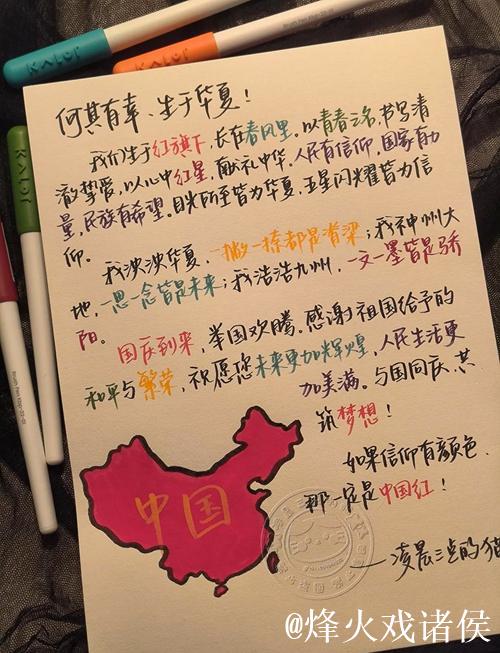 何其有幸、生于华夏！
我们生于红旗下，长在春风里。以青春之名，书写清
澈挚爱，以心中红星，献礼中华。人民有信仰，国家有力
量，民族有希望。目光所至皆为华夏，五星闪耀皆为信
仰。
我泱泱华夏，一撇一捺都是脊梁；我神州大
地，一思一念皆是未来；我浩浩九州，一文一墨皆是骄
阳。
国庆到来，举国欢腾。感谢祖国给予的
和平与繁荣，祝愿您未来更加辉煌，人民生活更
加美满。与国同庆，共
筑梦想！
如果信仰有颜色，
那一定是中国红！
——凌晨三点的猫
中国
@烽火戏诸侯